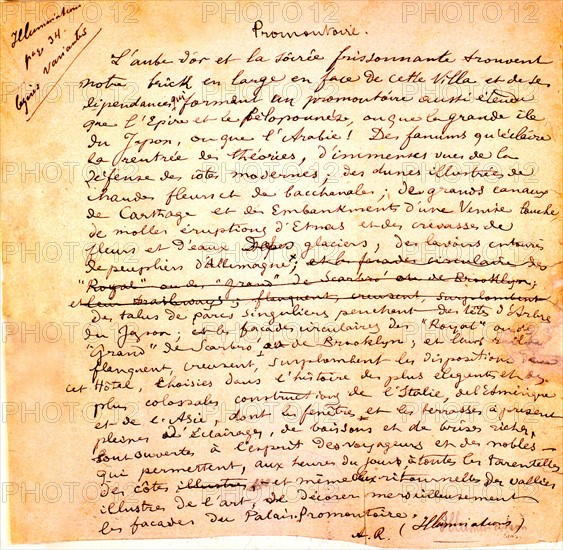 Illuminations
pag 34.
légères variantes
Promontoire.
L'aube d'or et la soirée frissonnante trouvent
notre brick en large en face de cette Villa et de ses
dépendances, qui forment un promontoire aussi étendu
que l'Epire et le Péloponnèse, ou que la grande île
du Japon, ou que l'Arabie! Des fanums qu'éclaire
la rentrée des théories, d'immenses vues de la
défense des côtes modernes; des dunes illustrées de
chaudes fleurs et de bacchanales; de grands canaux
de Carthage et des Embankments d'une Venise louche
de molles éruptions d'Etnas et des crevasses de
fleurs et d'eaux des glaciers, des lavoirs entourés
de peupliers d'Allemagne; et les façades circulaires des
"Royal" ou des "Grand" de Scarbro' ou de Brooklyn;
et leurs railways flanquent, creusent, surplombent
des talus de parcs singuliers penchant des têtes d'Arbre
du Japon; et les façades circulaires des "Royal" ou des
"Grand" de Scarbro' ou de Brooklyn; et leurs
flanquent, creusent, surplombent les dispositions dans
cet Hôtel, choisies dans l'histoire des plus élégantes et des
plus colossales constructions de l'Italie, de l'Amérique
et de l'Asie, dont les fenêtres et les terrasses à présent
pleines d'éclairages, de boissons et de brises riches,
sont ouvertes à l'esprit des voyageurs et des nobles -
qui permettent, aux heures du jour, à toutes les tarentelles
des côtes illustres - et même aux ritournelles des vallées
illustres de l'art, de décorer merveilleusement
les façades du Palais-Promontoire.
A. R. (Illuminations)
PHOTO12